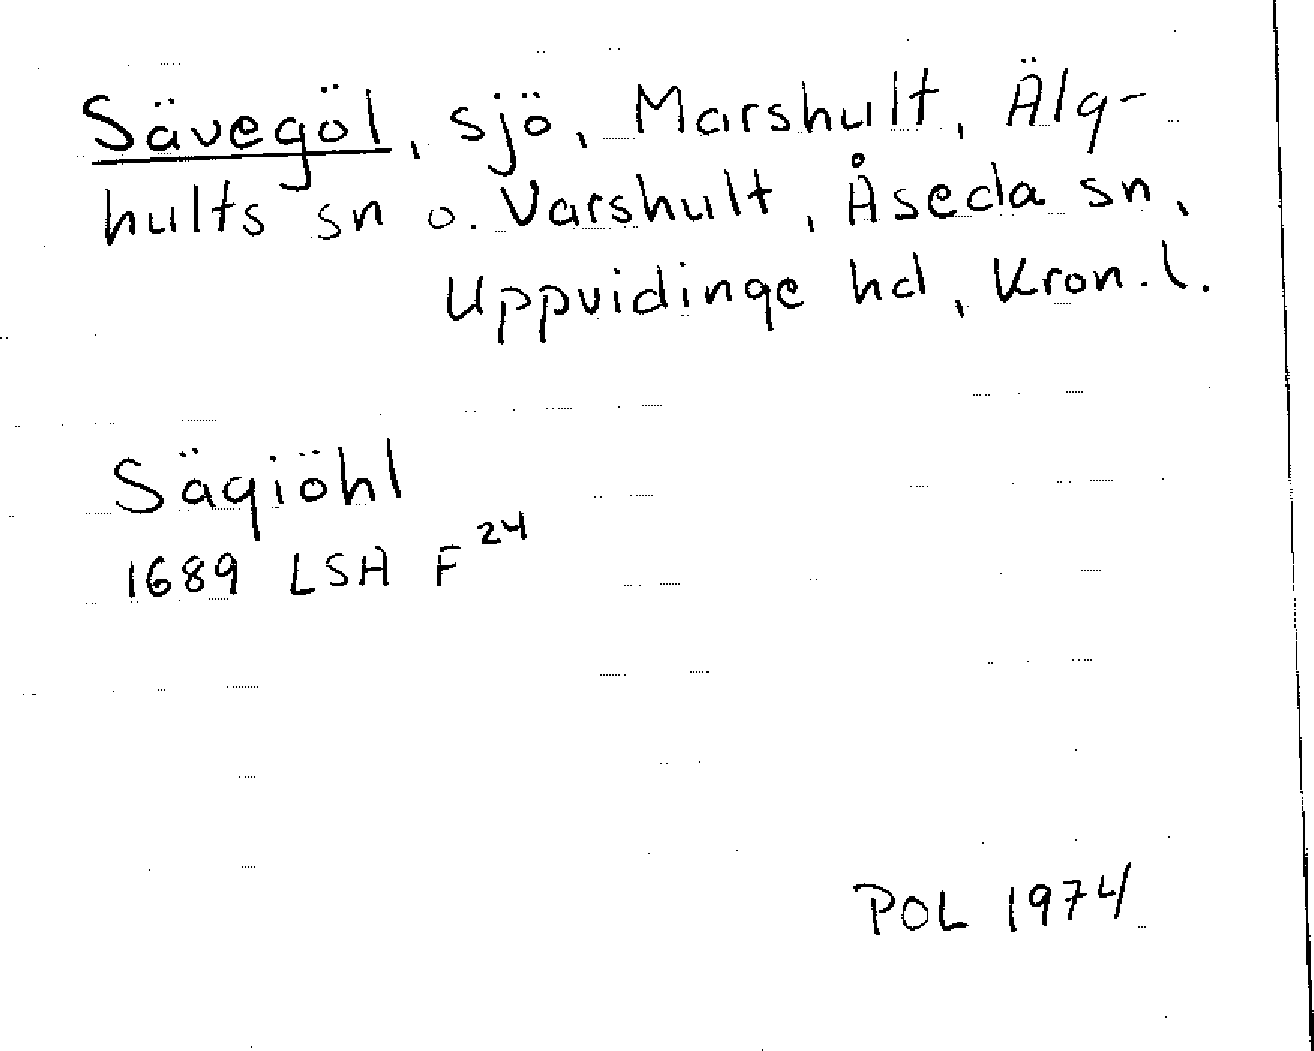 Sävegöl, sjö, Marshult, Älg-
hults sn o. Varshult, Åseda sn,
Uppvidinge hd, Kron. l.
Sägiöhl
1689 LSA F 24
POL 1974